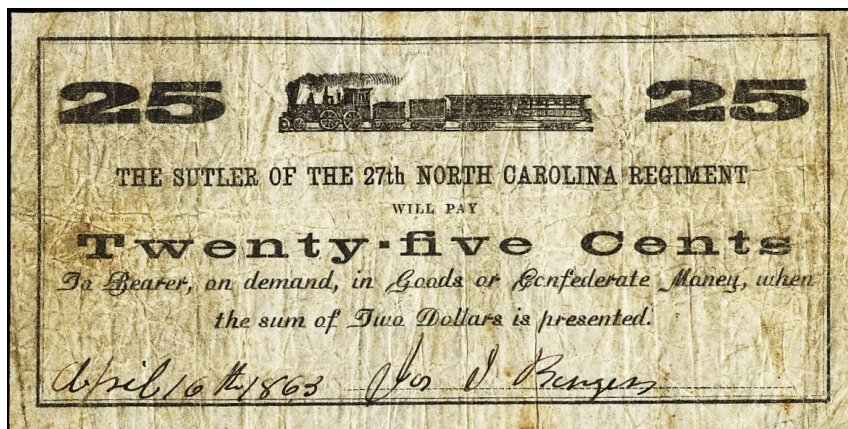 25 25
THE SUTLER OF THE 27th NORTH CAROLINA REGIMENT
WILL PAY
Twenty-five Cents
To Bearer, on demand, in Goods or Confederate Money, when
the sum of Two Dollars is presented.
April 16th 1863